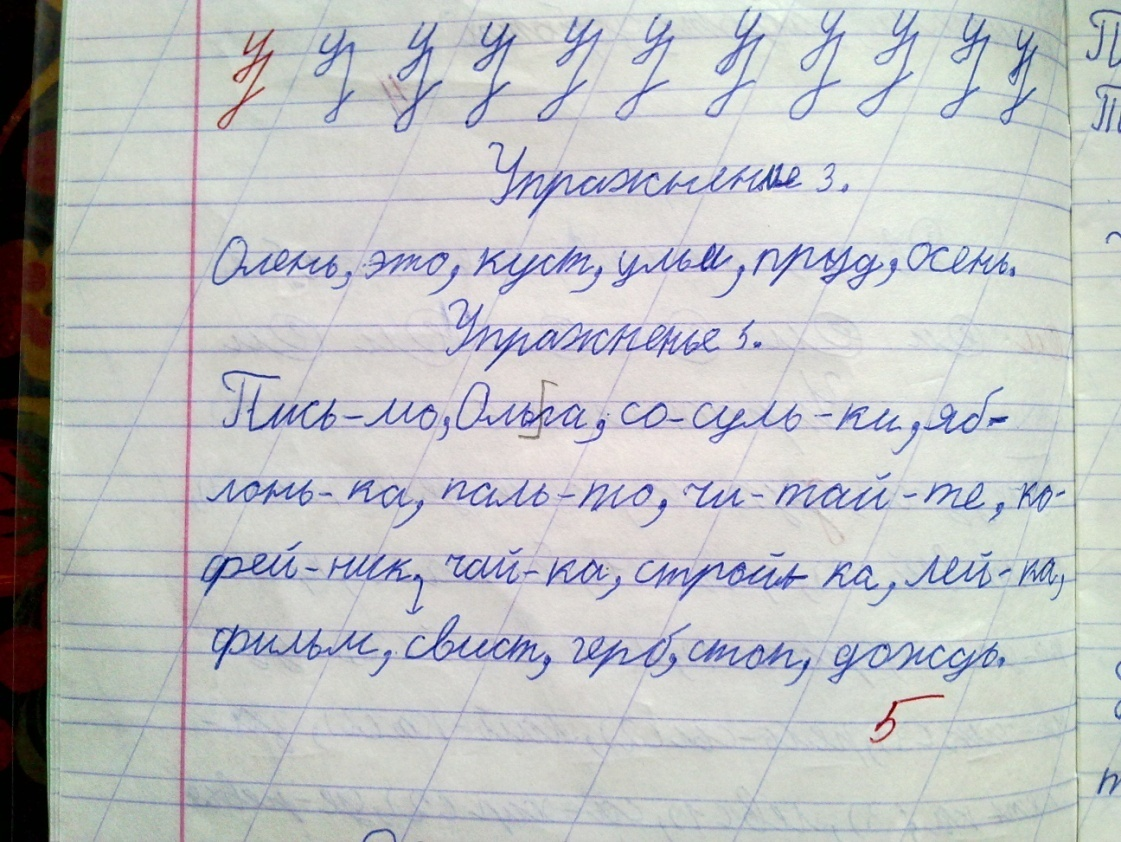 У У У У У У У У У У У
Упражнение 3.
Олень, это, куст, ульи, пруд, осень.
Упражненье 3.
Пись-мо, Ольга, со-суль-ки, яб-
лонь-ка, паль-то, чи-тай-те, ко-
фей-ник, чай-ка, строй-ка, лей-ка,
фильм, свист, герб, стоп, дождь.
5